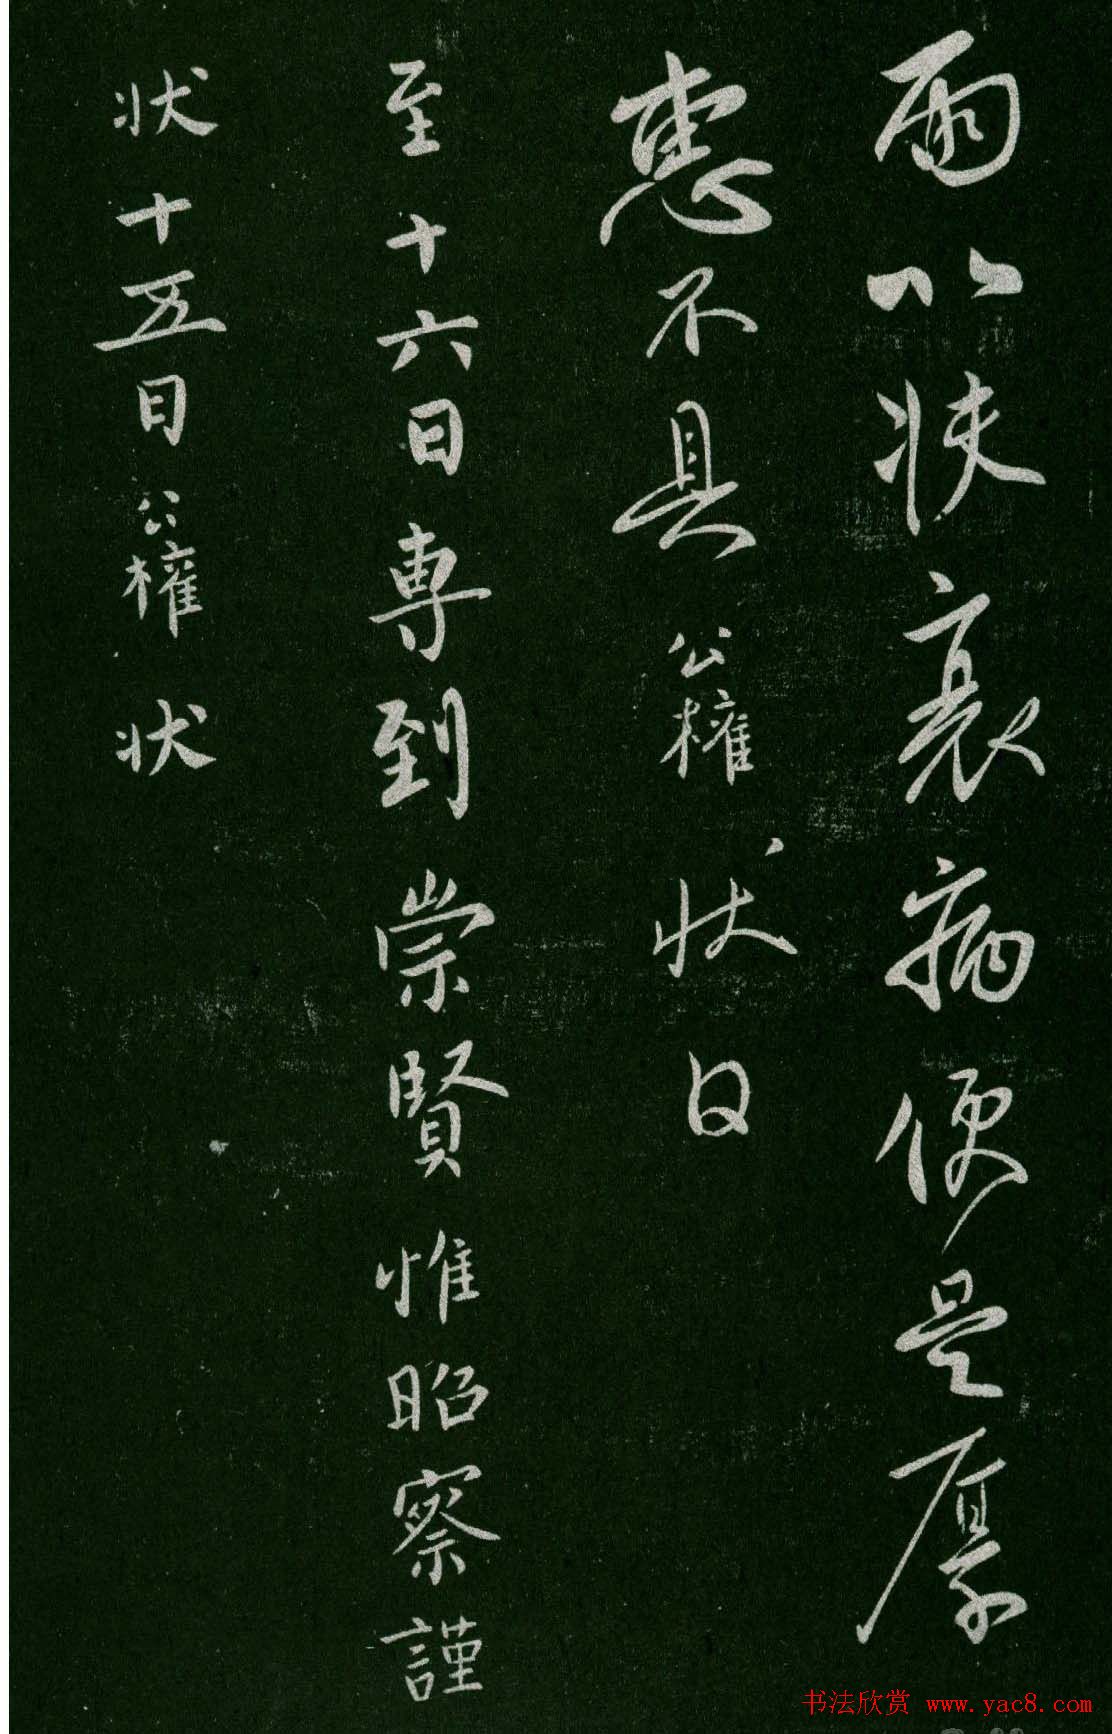 兩以扶衰病便是厚
惠不具公權状白
至十六日専到崇賢惟昭察謹
状十五日公權状
书法欣赏 www.yac8.com